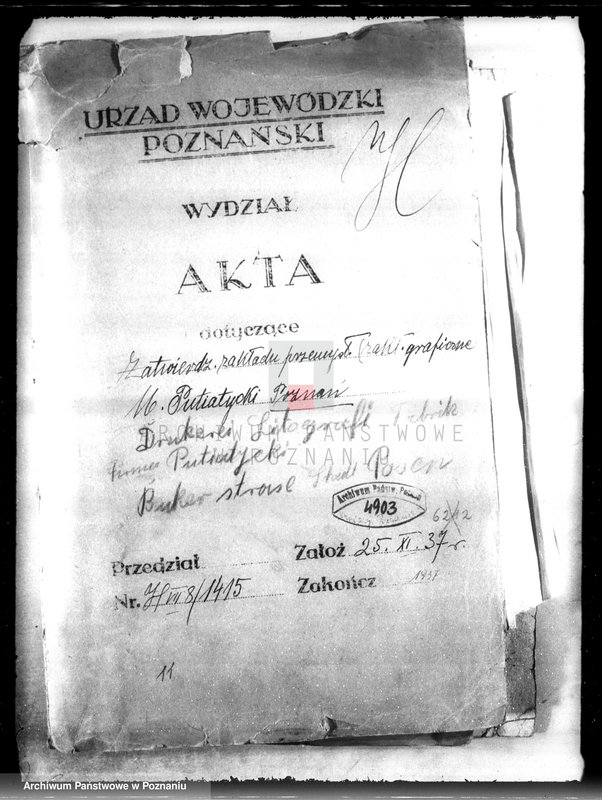 URZĄD WOJEWÓDZKI
POZNAŃSKI
WYDZIAŁ
AKTA
dotyczące
Zatwierdz. zakładu przemysł. (zakł. graficzne
M. Putiatycki Poznań
Drukerei Litografi Febrik
firma Putiatycki
Buker strase Stadt Posen
ARCHIWUM PAŃSTWOWE
W POZNANIU
Archiwum Państw. Poznań
4903
6212
Przedział
Założ 25. XI. 37 r.
Nr. VIII 8/1415
Zakończ 1937
11
Archiwum Państwowe w Poznaniu